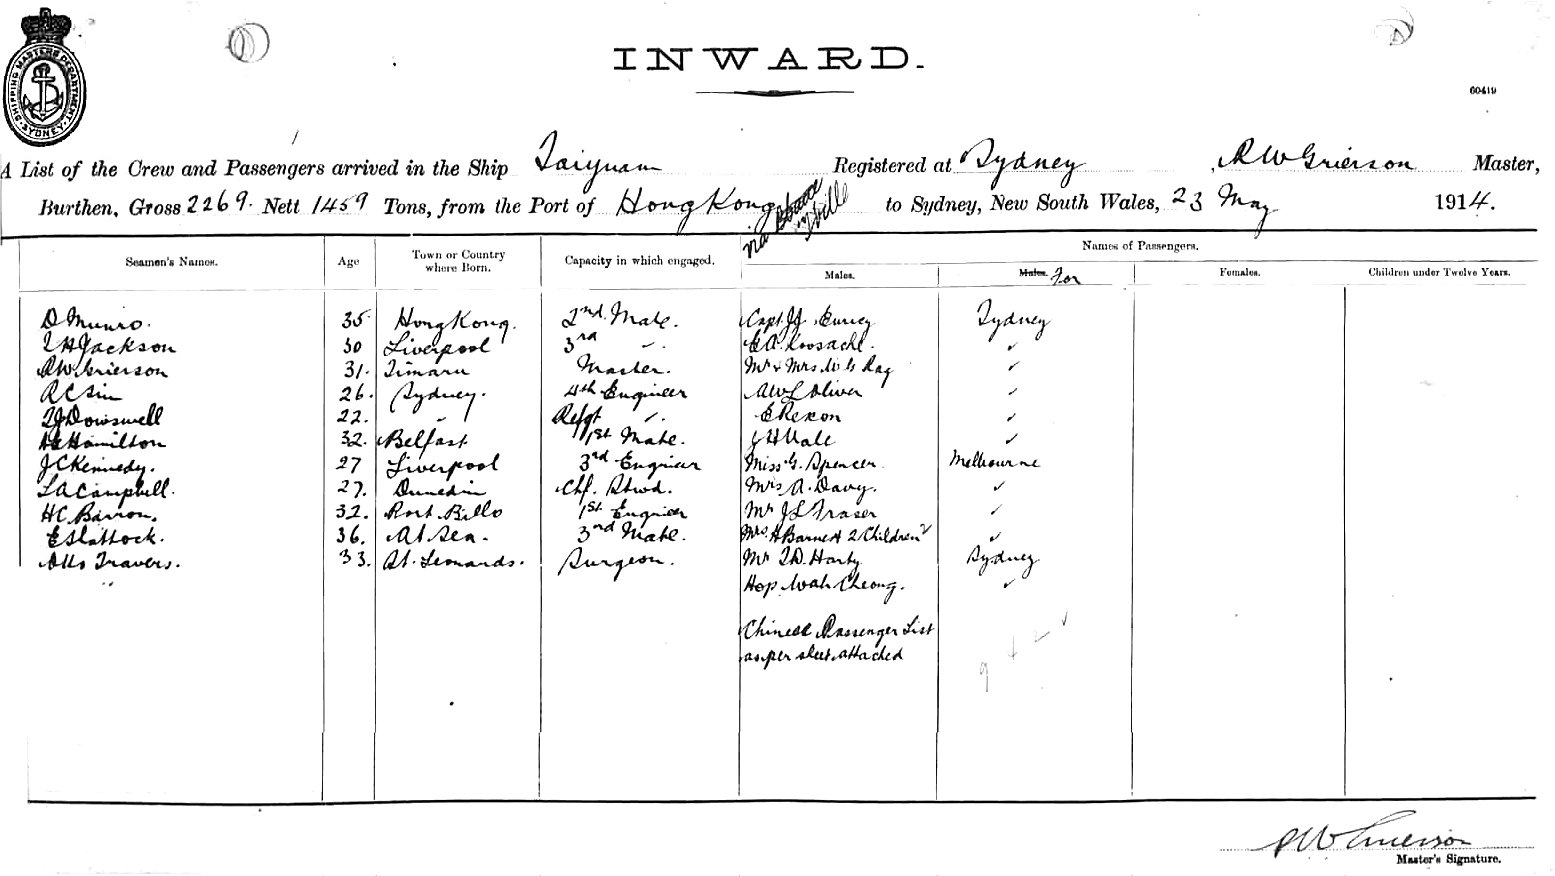 SHIPPING MASTERS DEPARTMENT. SYDNEY
INWARD.
60419
A List of the Crew and Passengers arrived in the Ship Taiyuan Registered at Sydney, RW Grierson Master,
Burthen, Gross 2269. Nett 1459 Tons, from the Port of Hong Kong via to Sydney, New South Wales, 23 May 1914.
Seamen's Names. Age Town or Country where Born. Capacity in which engaged. Names of Passengers.
Males. Males. For Females. Children under Twelve Years.
D Munro. 35 Hong Kong. 2nd Mate. Capt. JJ Sydney
Jackson 30 Liverpool 3rd " E.A. ✓
RW Grierson 31. Timaru Master. Mr & Mrs ✓
RC Sim 26. Sydney. 4th Engineer AWL Oliver ✓
Dowswell 22. " Refgt " E Rexon ✓
Hamilton 32. Belfast 1st Mate. JH Vale ✓
JC Kennedy. 27 Liverpool 3rd Engineer Miss G. Spencer Melbourne
LA Campbell. 27. Dunedin Chf. Stwd. Mrs A. Davy. ✓
HC Barron. 32. Port 1st Engineer Mr JL Fraser ✓
E Slattock. 36. At Sea. 3rd Mate. Mrs A Barnett 2 Children ✓
Otto Travers. 33. St. Leonards. Surgeon. Mr Harby Sydney
Hop Wah Cheong. ✓
Chinese Passenger List
as per sheet attached
RW Grierson
Master's Signature.